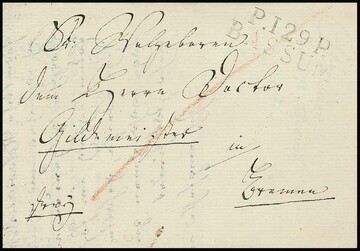 P.129.P.
BASSUM
Sr. Wolgeboren
dem Herrn Doctor
Gildemeister
in
Bremen
frei